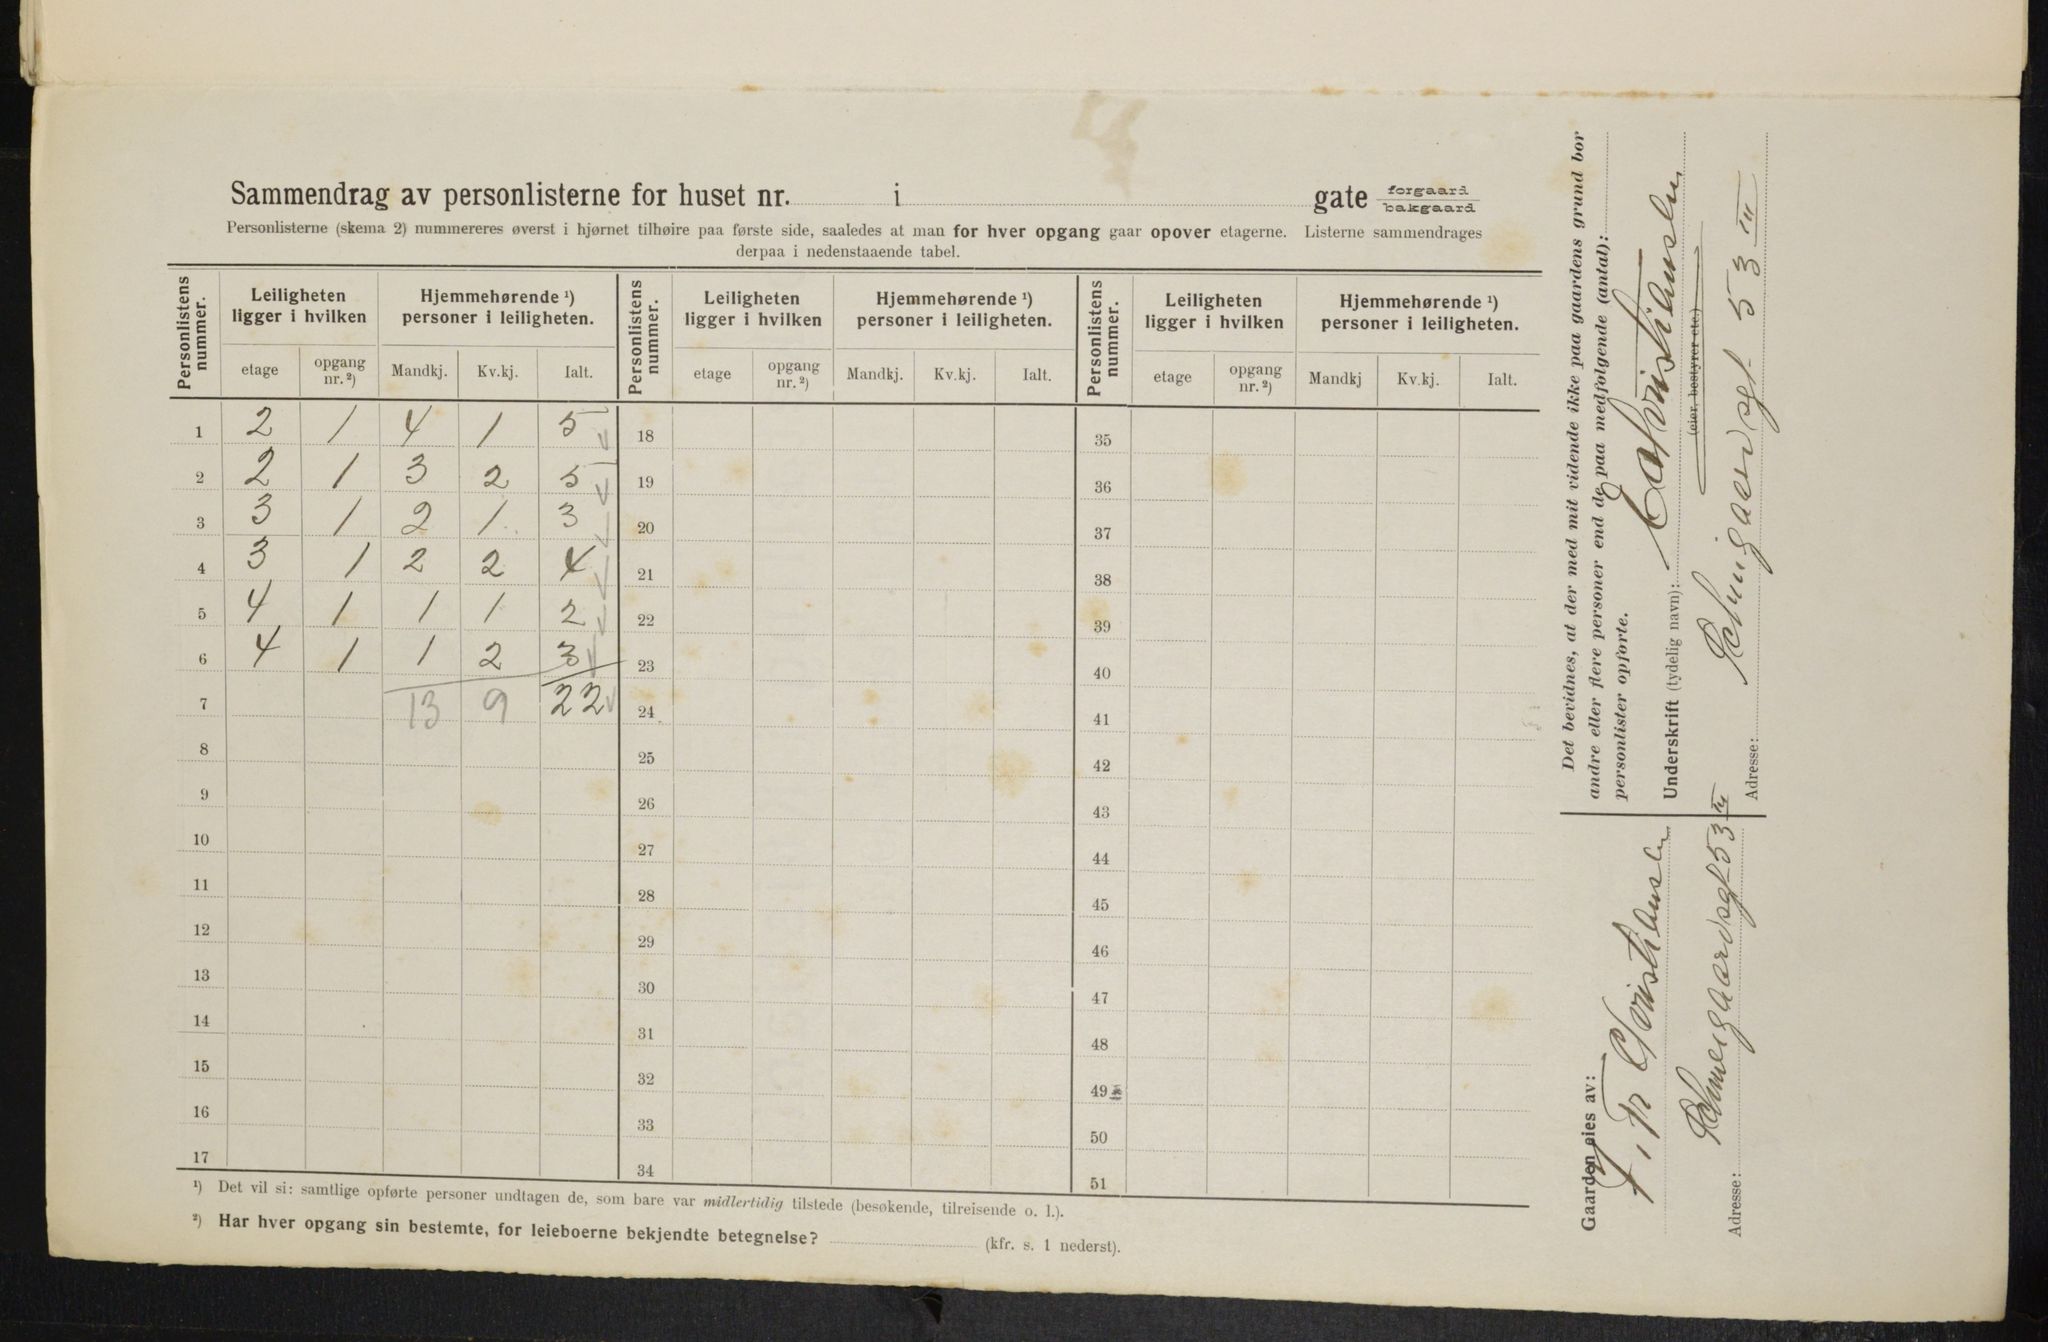 Sammendrag av personlisterne for huset nr. i gate forgaard bakgaard
Personlisterne (skema 2) nummereres øverst i hjørnet tilhøire paa første side, saaledes at man for hver opgang gaar opover etagerne. Listerne sammendrages
derpaa i nedenstaaende tabel.
Personlistens nummer. Leiligheten ligger i hvilken Hjemmehørende ¹) personer i leiligheten. Personlistens nummer. Leiligheten ligger i hvilken Hjemmehørende ¹) personer i leiligheten. Personlistens nummer. Leiligheten ligger i hvilken Hjemmehørende ¹) personer i leiligheten.
etage opgang nr. ²) Mandkj. Kv.kj. Ialt. etage opgang nr. ²) Mandkj. Kv.kj. Ialt. etage opgang nr. ²) Mandkj Kv.kj. Ialt.
1 2 1 4 1 5 18 35
2 2 1 3 2 5 19 36
3 3 1 2 1 3 20 37
4 3 1 2 2 4 21 38
5 4 1 1 1 2 22 39
6 4 1 1 2 3 23 40
7 13 9 22 24 41
8 25 42
9 26 43
10 27 44
11 28 45
12 29 46
13 30 47
14 31 48
15 32 49
16 33 50
17 34 51
¹) Det vil si: samtlige opførte personer undtagen de, som bare var midlertidig tilstede (besøkende, tilreisende o. l.).
²) Har hver opgang sin bestemte, for leieboerne bekjendte betegnelse? (kfr. s. 1 nederst).
Det bevidnes, at der med mit vidende ikke paa gaardens grund bor
andre eller flere personer end de paa medfølgende (antal):
personlister opførte.
Underskrift (tydelig navn):
(eier, bestyrer etc.)
Adresse: Schweigaardsgt 53 IV
Gaarden eies av:
Fr Christiansen
Adresse: Schweigaardsgt 53 IV